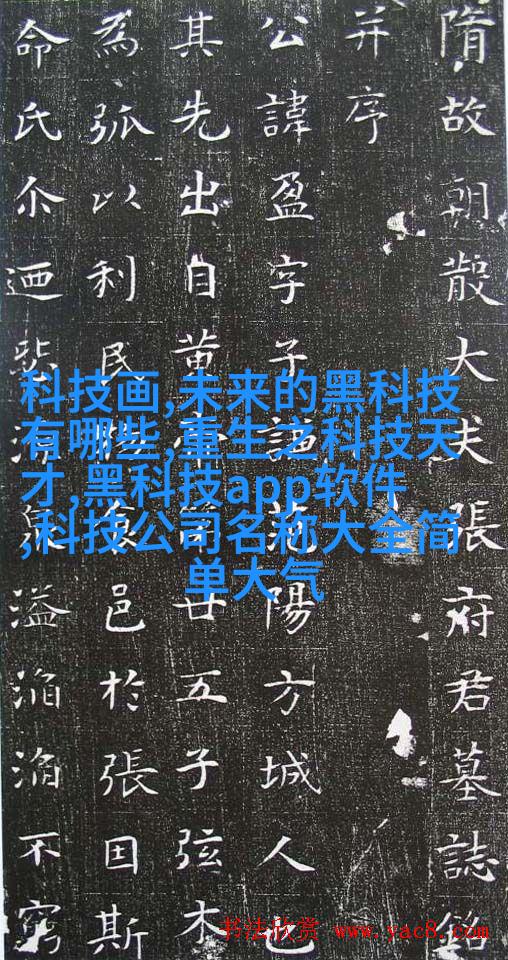 隋故朝散大夫張府君墓誌銘
并序
公諱盈字子謙陽方城人也
其先出自黃帝廿五子弦木
為弧以利民食邑於張因斯
命氏尒迺泉溢滔滔不窮
科技画,未来的黑科技
有哪些,重生之科技天
才,黑科技app软件
,科技公司名称大全简
单大气
书法欣赏 www.yac8.com